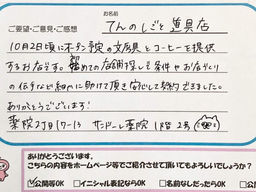 お名前
ご要望・ご意見・ご感想
てんのしごと 道具店
10月2日頃にオープン予定の文房具とコーヒーを提供
するお店です。初めての店舗探しで条件やお店づくり
の伝など細かに助けて頂き安心して契約できました。
ありがとうございます!
薬院2丁目17-13 サンドール薬院 1階 2号
ありがとうございます。
皆様のお声をホームページ等でご紹介させて頂いてもよろしいでしょうか?
公開等OK
イニシャル表記ならOK
名前なしだったらOK